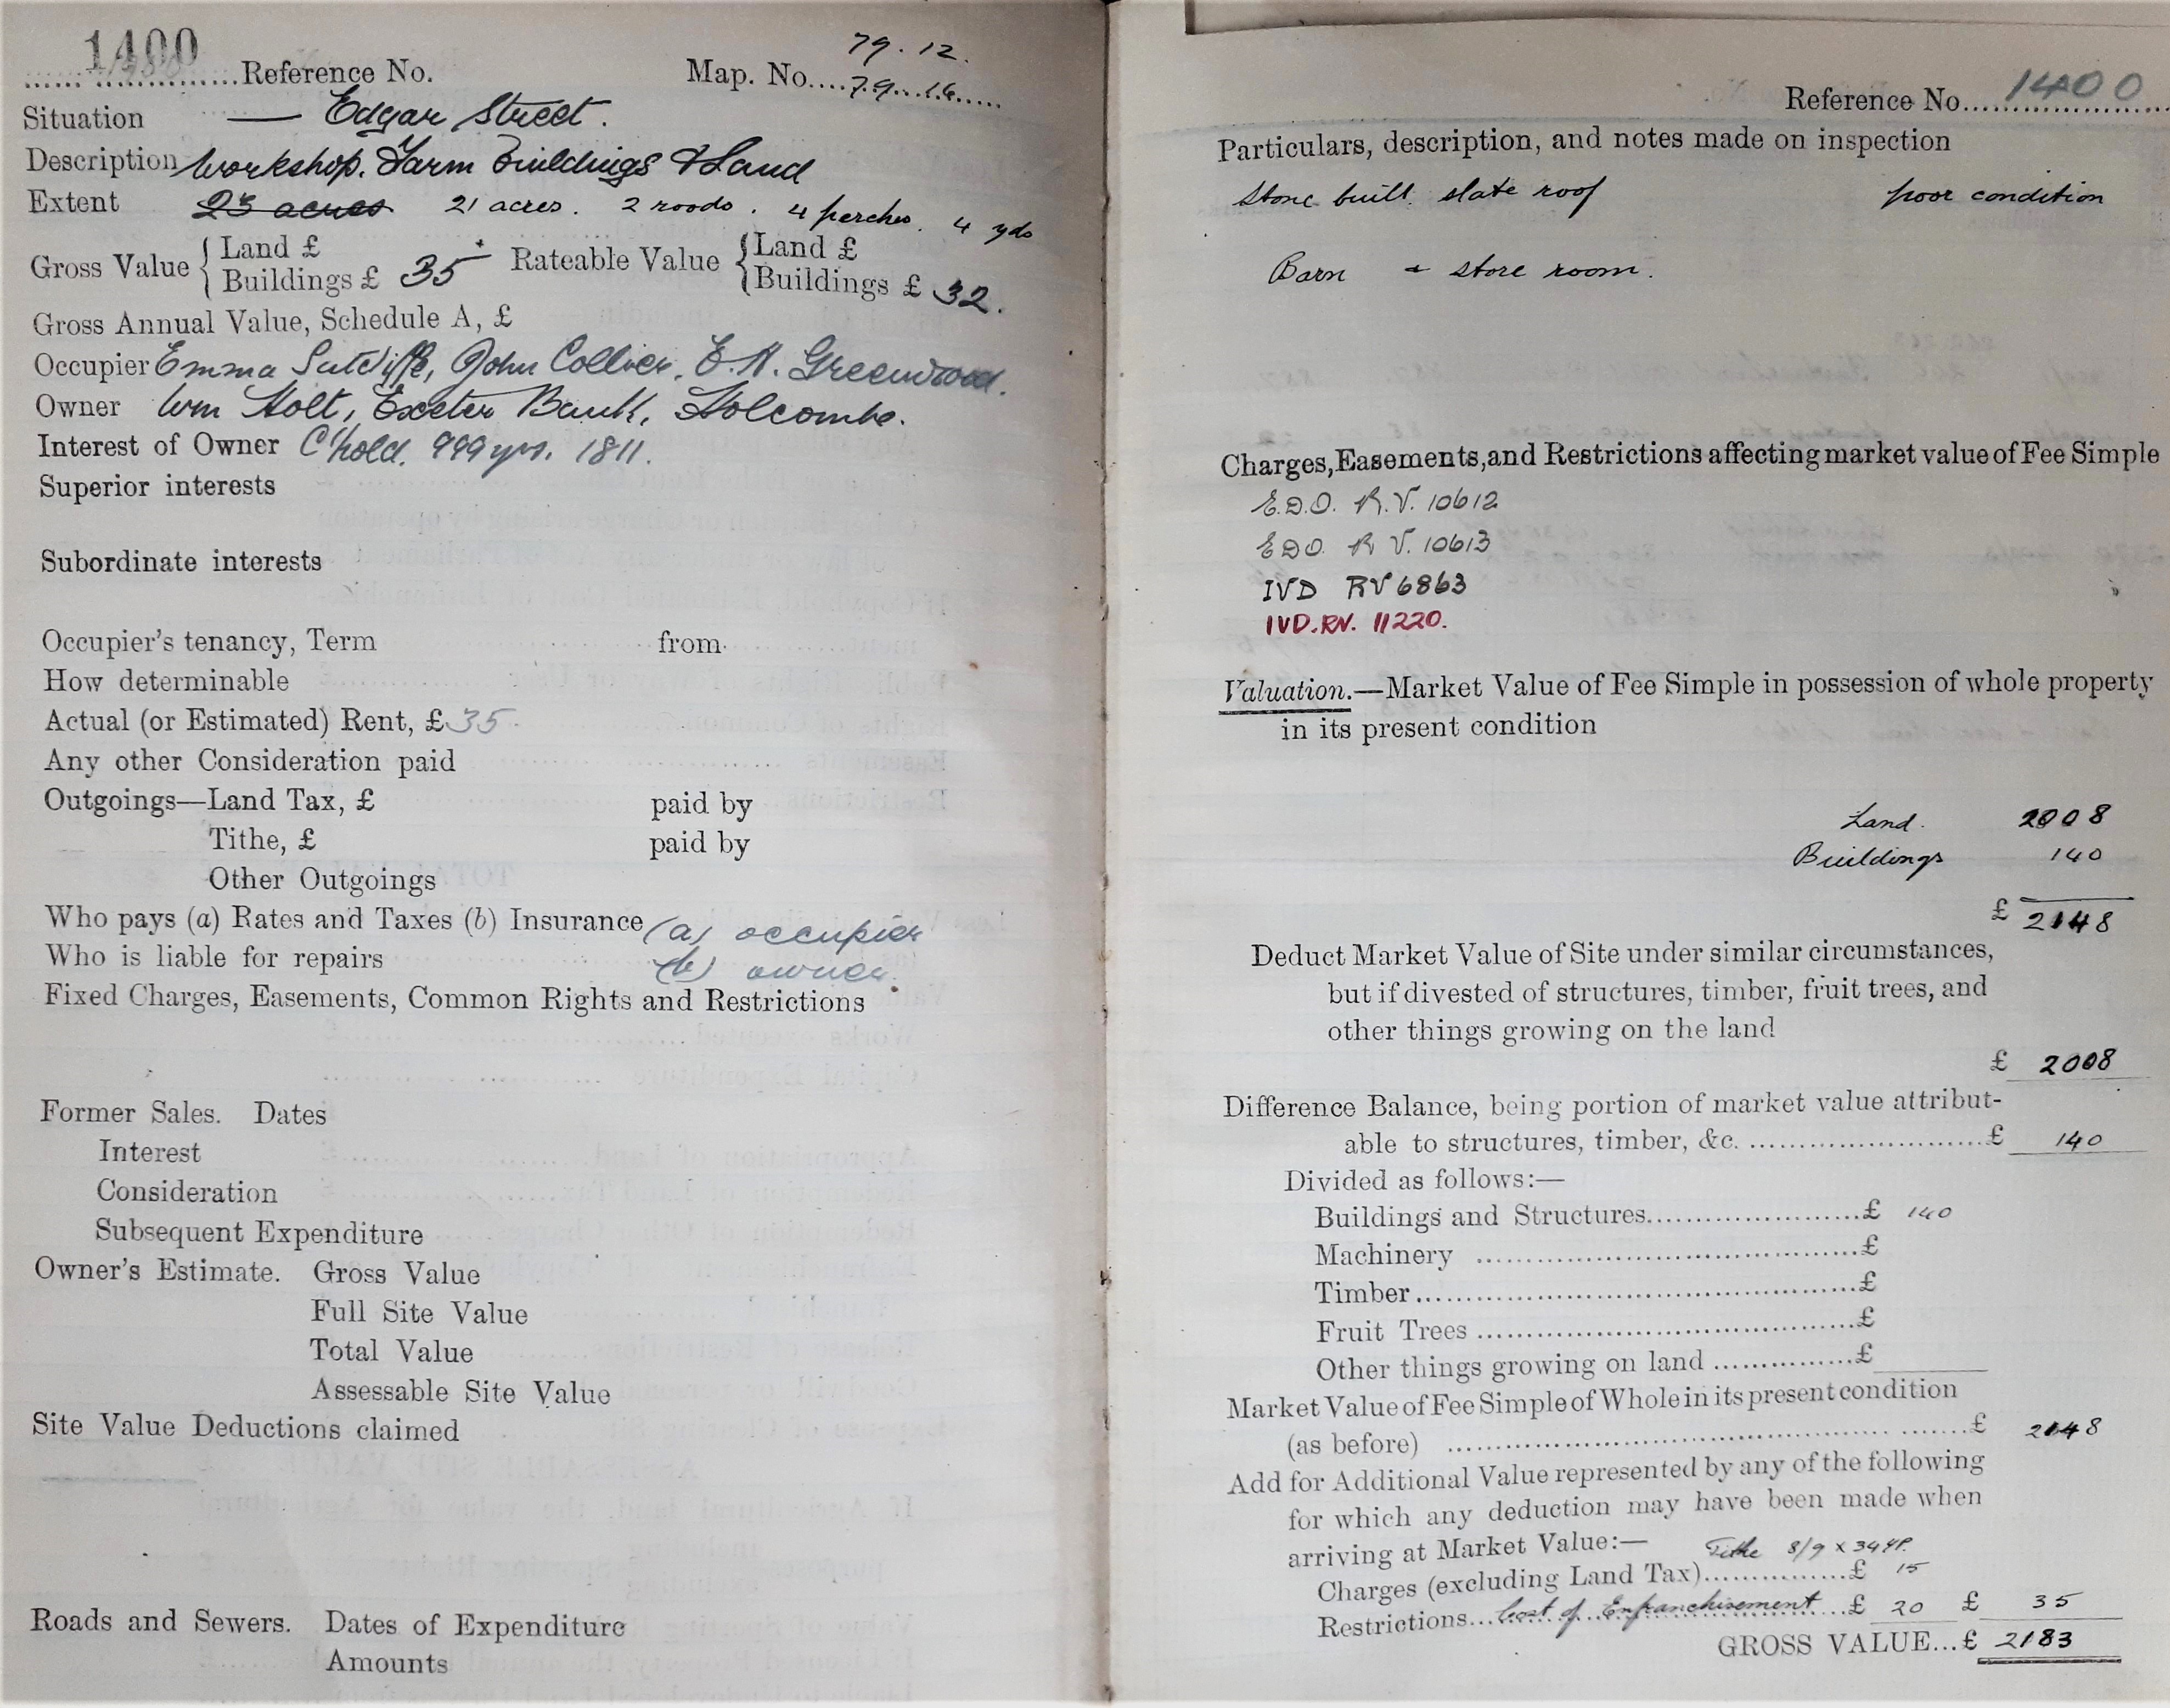 1400
79.12.
Reference No. Map. No. 79.16
Situation — Edgar Street.
Description Workshop. Farm Buildings & Land
Extent 23 acres 21 acres. 2 roods. 4 perches. 4 yds
Gross Value { Land £ Rateable Value { Land £
Buildings £ 35 Buildings £ 32.
Gross Annual Value, Schedule A, £
Occupier Emma Sutcliffe, John Collier, E. H. Greenwood.
Owner Wm Holt, Exeter Bank, Holcombe.
Interest of Owner C'hold. 999 yrs. 1811.
Superior interests
Subordinate interests
Occupier's tenancy, Term from
How determinable
Actual (or Estimated) Rent, £ 35
Any other Consideration paid
Outgoings—Land Tax, £ paid by
Tithe, £ paid by
Other Outgoings
Who pays (a) Rates and Taxes (b) Insurance (a) occupier
Who is liable for repairs (b) owner.
Fixed Charges, Easements, Common Rights and Restrictions
Former Sales. Dates
Interest
Consideration
Subsequent Expenditure
Owner's Estimate. Gross Value
Full Site Value
Total Value
Assessable Site Value
Site Value Deductions claimed
Roads and Sewers. Dates of Expenditure
Amounts
Reference No. 1400
Particulars, description, and notes made on inspection
Stone built slate roof poor condition
Barn & store room.
Charges, Easements, and Restrictions affecting market value of Fee Simple
E.D.O. R.V. 10612
EDO. R V. 10613
IVD RV 6863
IVD.RV. 11220.
Valuation.—Market Value of Fee Simple in possession of whole property
in its present condition
Land. 2008
Buildings 140
£ 2148
Deduct Market Value of Site under similar circumstances,
but if divested of structures, timber, fruit trees, and
other things growing on the land
£ 2008
Difference Balance, being portion of market value attribut-
able to structures, timber, &c. £ 140
Divided as follows:—
Buildings and Structures £ 140
Machinery £
Timber £
Fruit Trees £
Other things growing on land £
Market Value of Fee Simple of Whole in its present condition
(as before) £ 2148
Add for Additional Value represented by any of the following
for which any deduction may have been made when
arriving at Market Value:— Tithe 8/9 x 34 YP.
Charges (excluding Land Tax) £ 15
Restrictions Cost of Enfranchisement £ 20 £ 35
GROSS VALUE... £ 2183